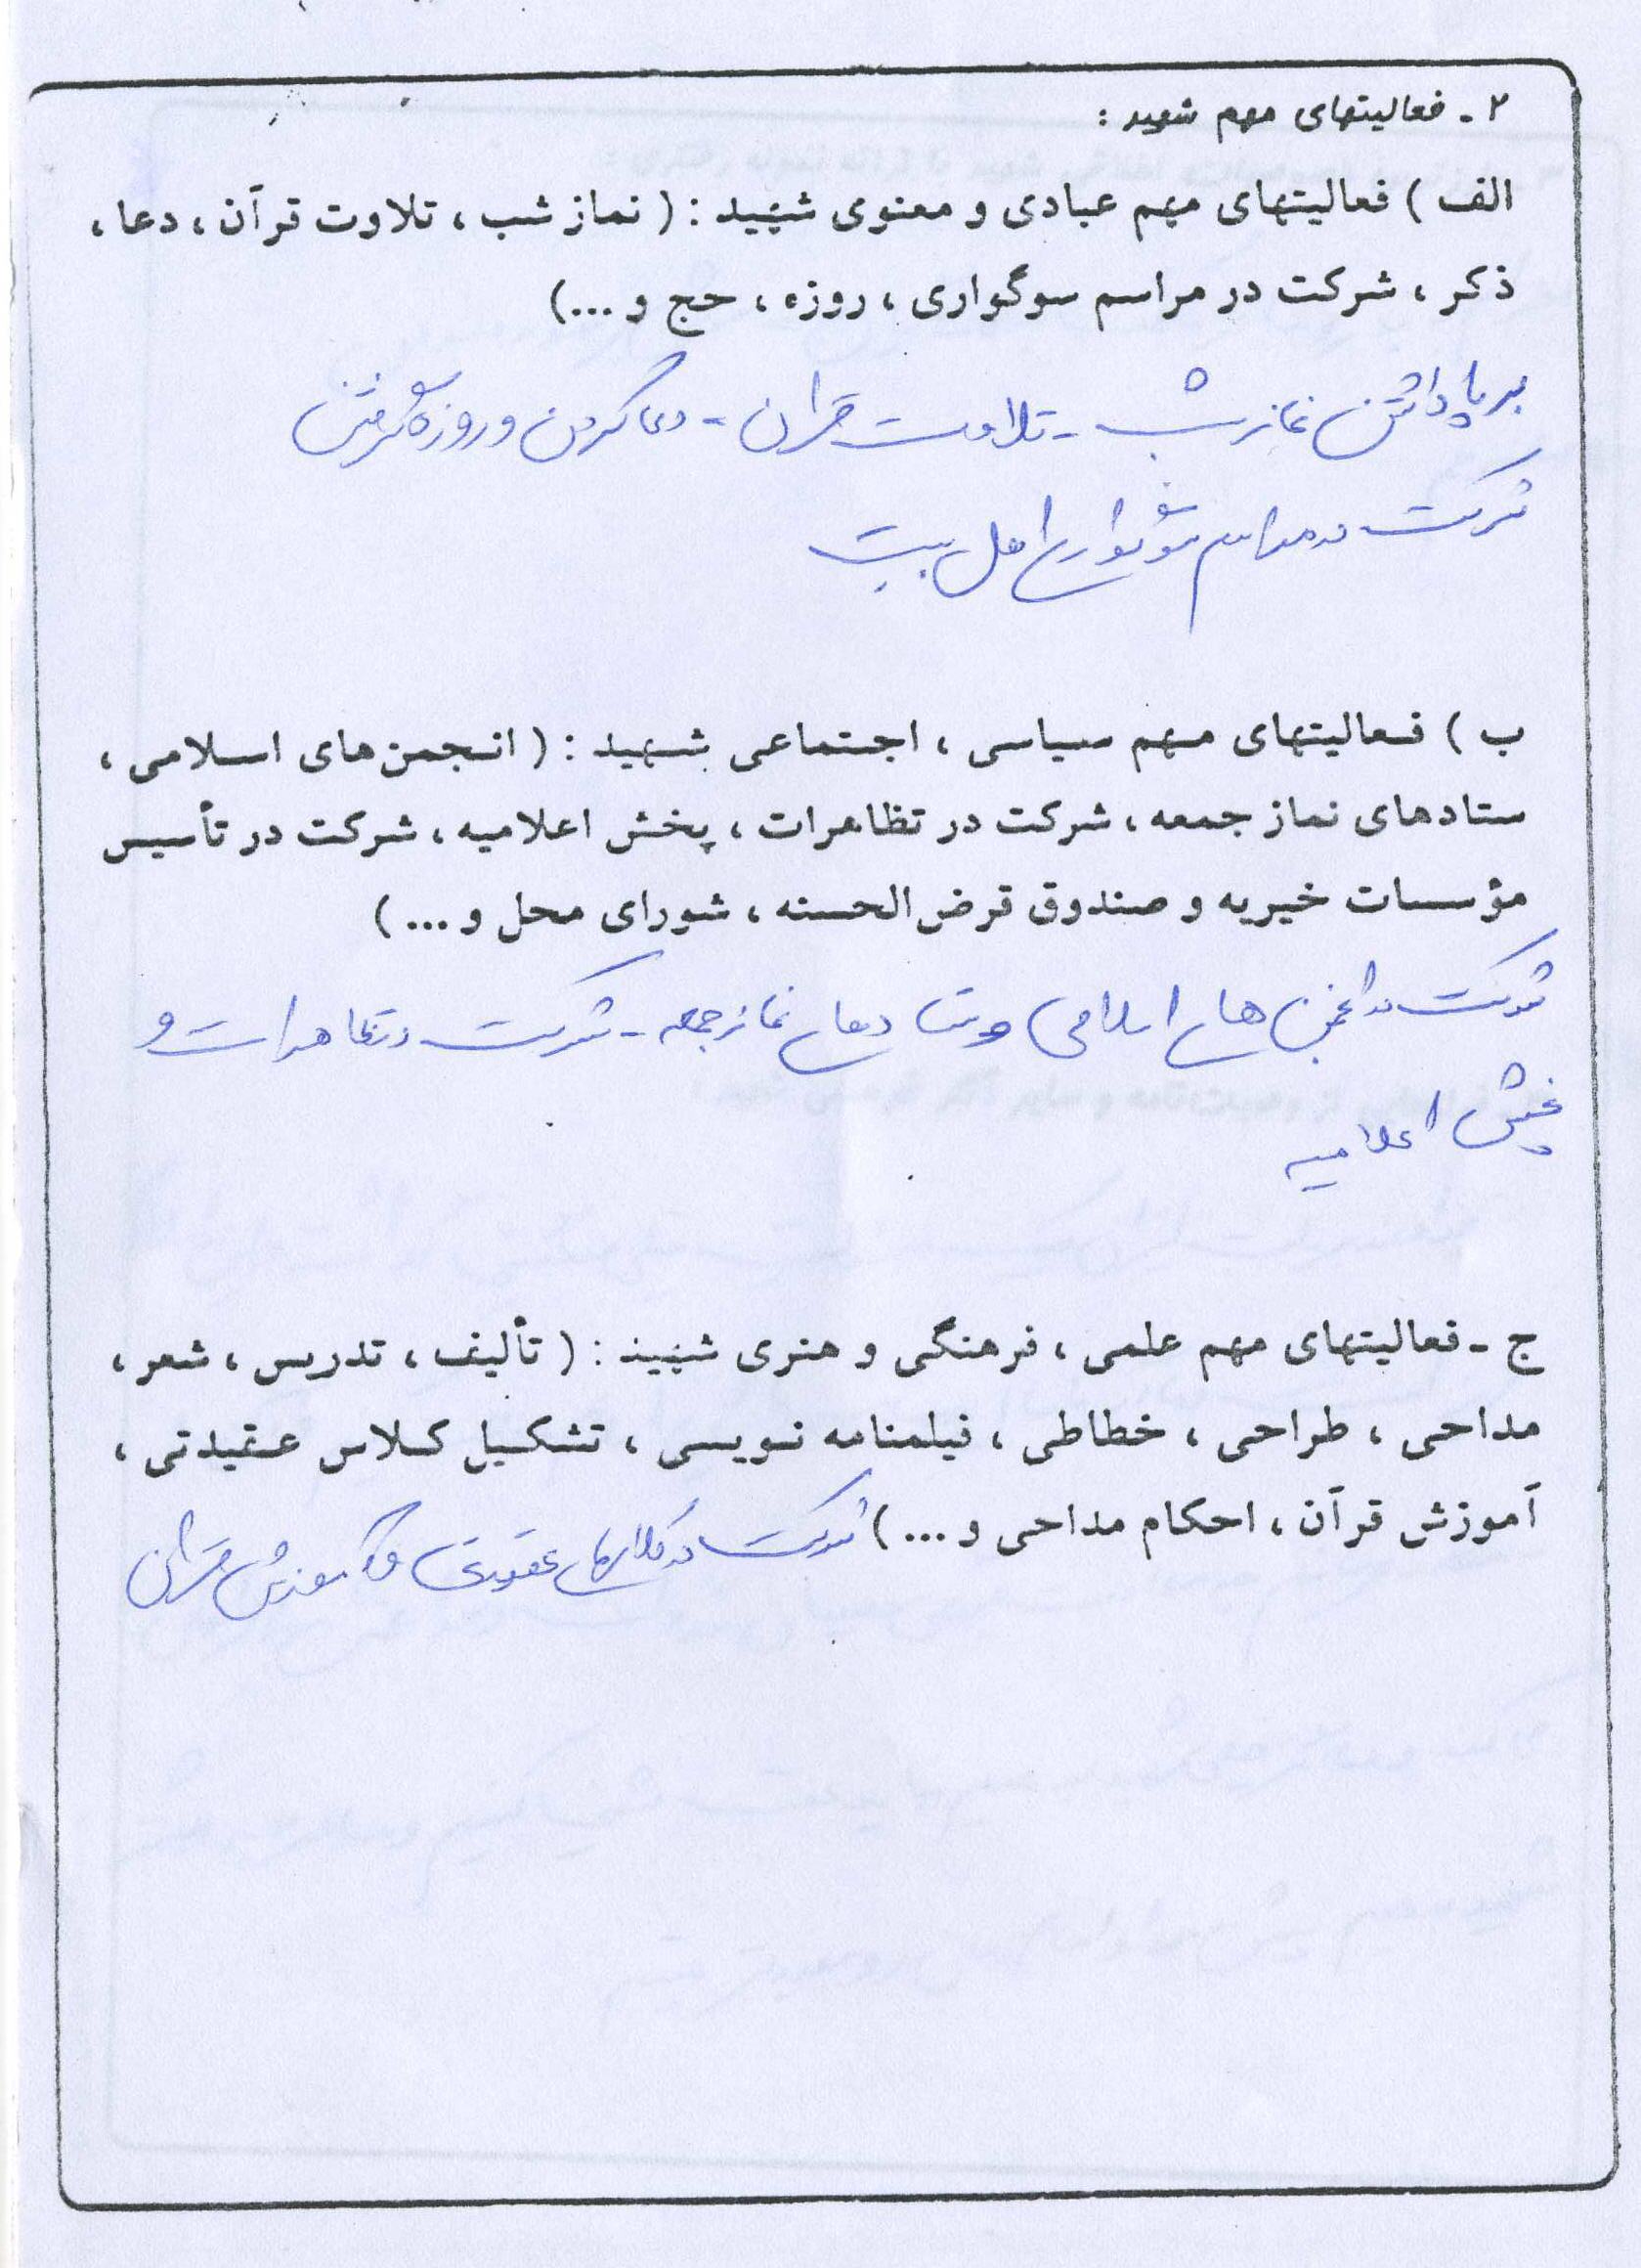 ۲ - فعالیتهای مهم شهید :
الف ) فعالیتهای مهم عبادی و معنوی شهید : ( نماز شب ، تلاوت قرآن ، دعا ،
ذکر ، شرکت در مراسم سوگواری ، روزه ، حج و ... )
برپا داشتن نماز شب - تلاوت قرآن - دعا کردن و روزه گرفتن
شرکت در مراسم سوگواری اهل بیت
ب ) فعالیتهای مهم سیاسی ، اجتماعی شهید : ( انجمن های اسلامی ،
ستادهای نماز جمعه ، شرکت در تظاهرات ، پخش اعلامیه ، شرکت در تأسیس
مؤسسات خیریه و صندوق قرض الحسنه ، شورای محل و ... )
شرکت در انجمن های اسلامی و ستادهای نماز جمعه - شرکت در تظاهرات و
پخش اعلامیه
ج - فعالیتهای مهم علمی ، فرهنگی و هنری شهید : ( تألیف ، تدریس ، شعر ،
مداحی ، طراحی ، خطاطی ، فیلمنامه نویسی ، تشکیل کلاس عقیدتی ،
آموزش قرآن ، احکام مداحی و ... ) شرکت در کلاسهای عقیدتی و آموزش قرآن